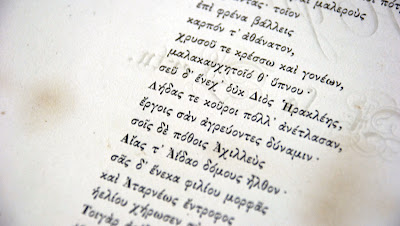 μαλεροὺς
ἀντας· τοῖον
ἐπὶ φρένα βάλλεις
καρπόν τ' ἀθάνατον,
χρυσοῦ τε κρέσσω καὶ γονέων,
μαλακαυχητοῖό θ' ὕπνου·
σεῦ δ' ἕνεχ' οὑκ Διὸς Ἡρακλέης,
Λήδας τε κοῦροι πολλ' ἀνέτλασαν,
ἔργοις σὰν ἀγρεύοντες δύναμιν·
σοῖς δὲ πόθοις Ἀχιλλεὺς
Αἴας τ' Ἀΐδαο δόμους ἦλθον·
σᾶς δ' ἕνεκα φιλίου μορφᾶς
καὶ Ἀταρνέως ἔντροφος
ἠελίου χήρωσεν
Τοιγὰρ